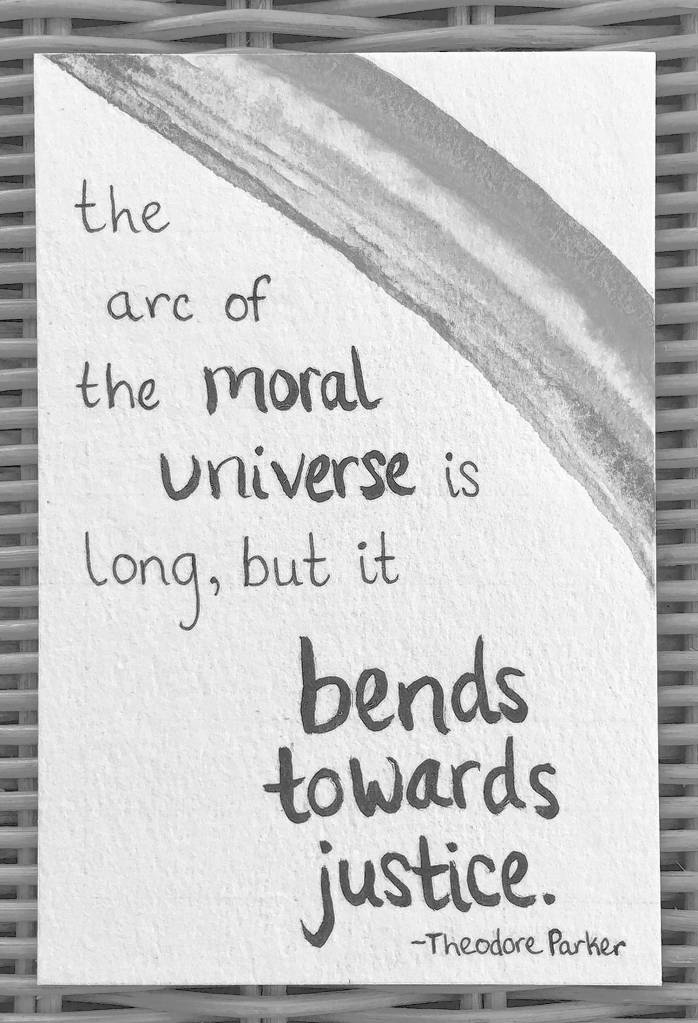 the
arc of
the moral
universe is
long, but it
bends
towards
justice.
-Theodore Parker